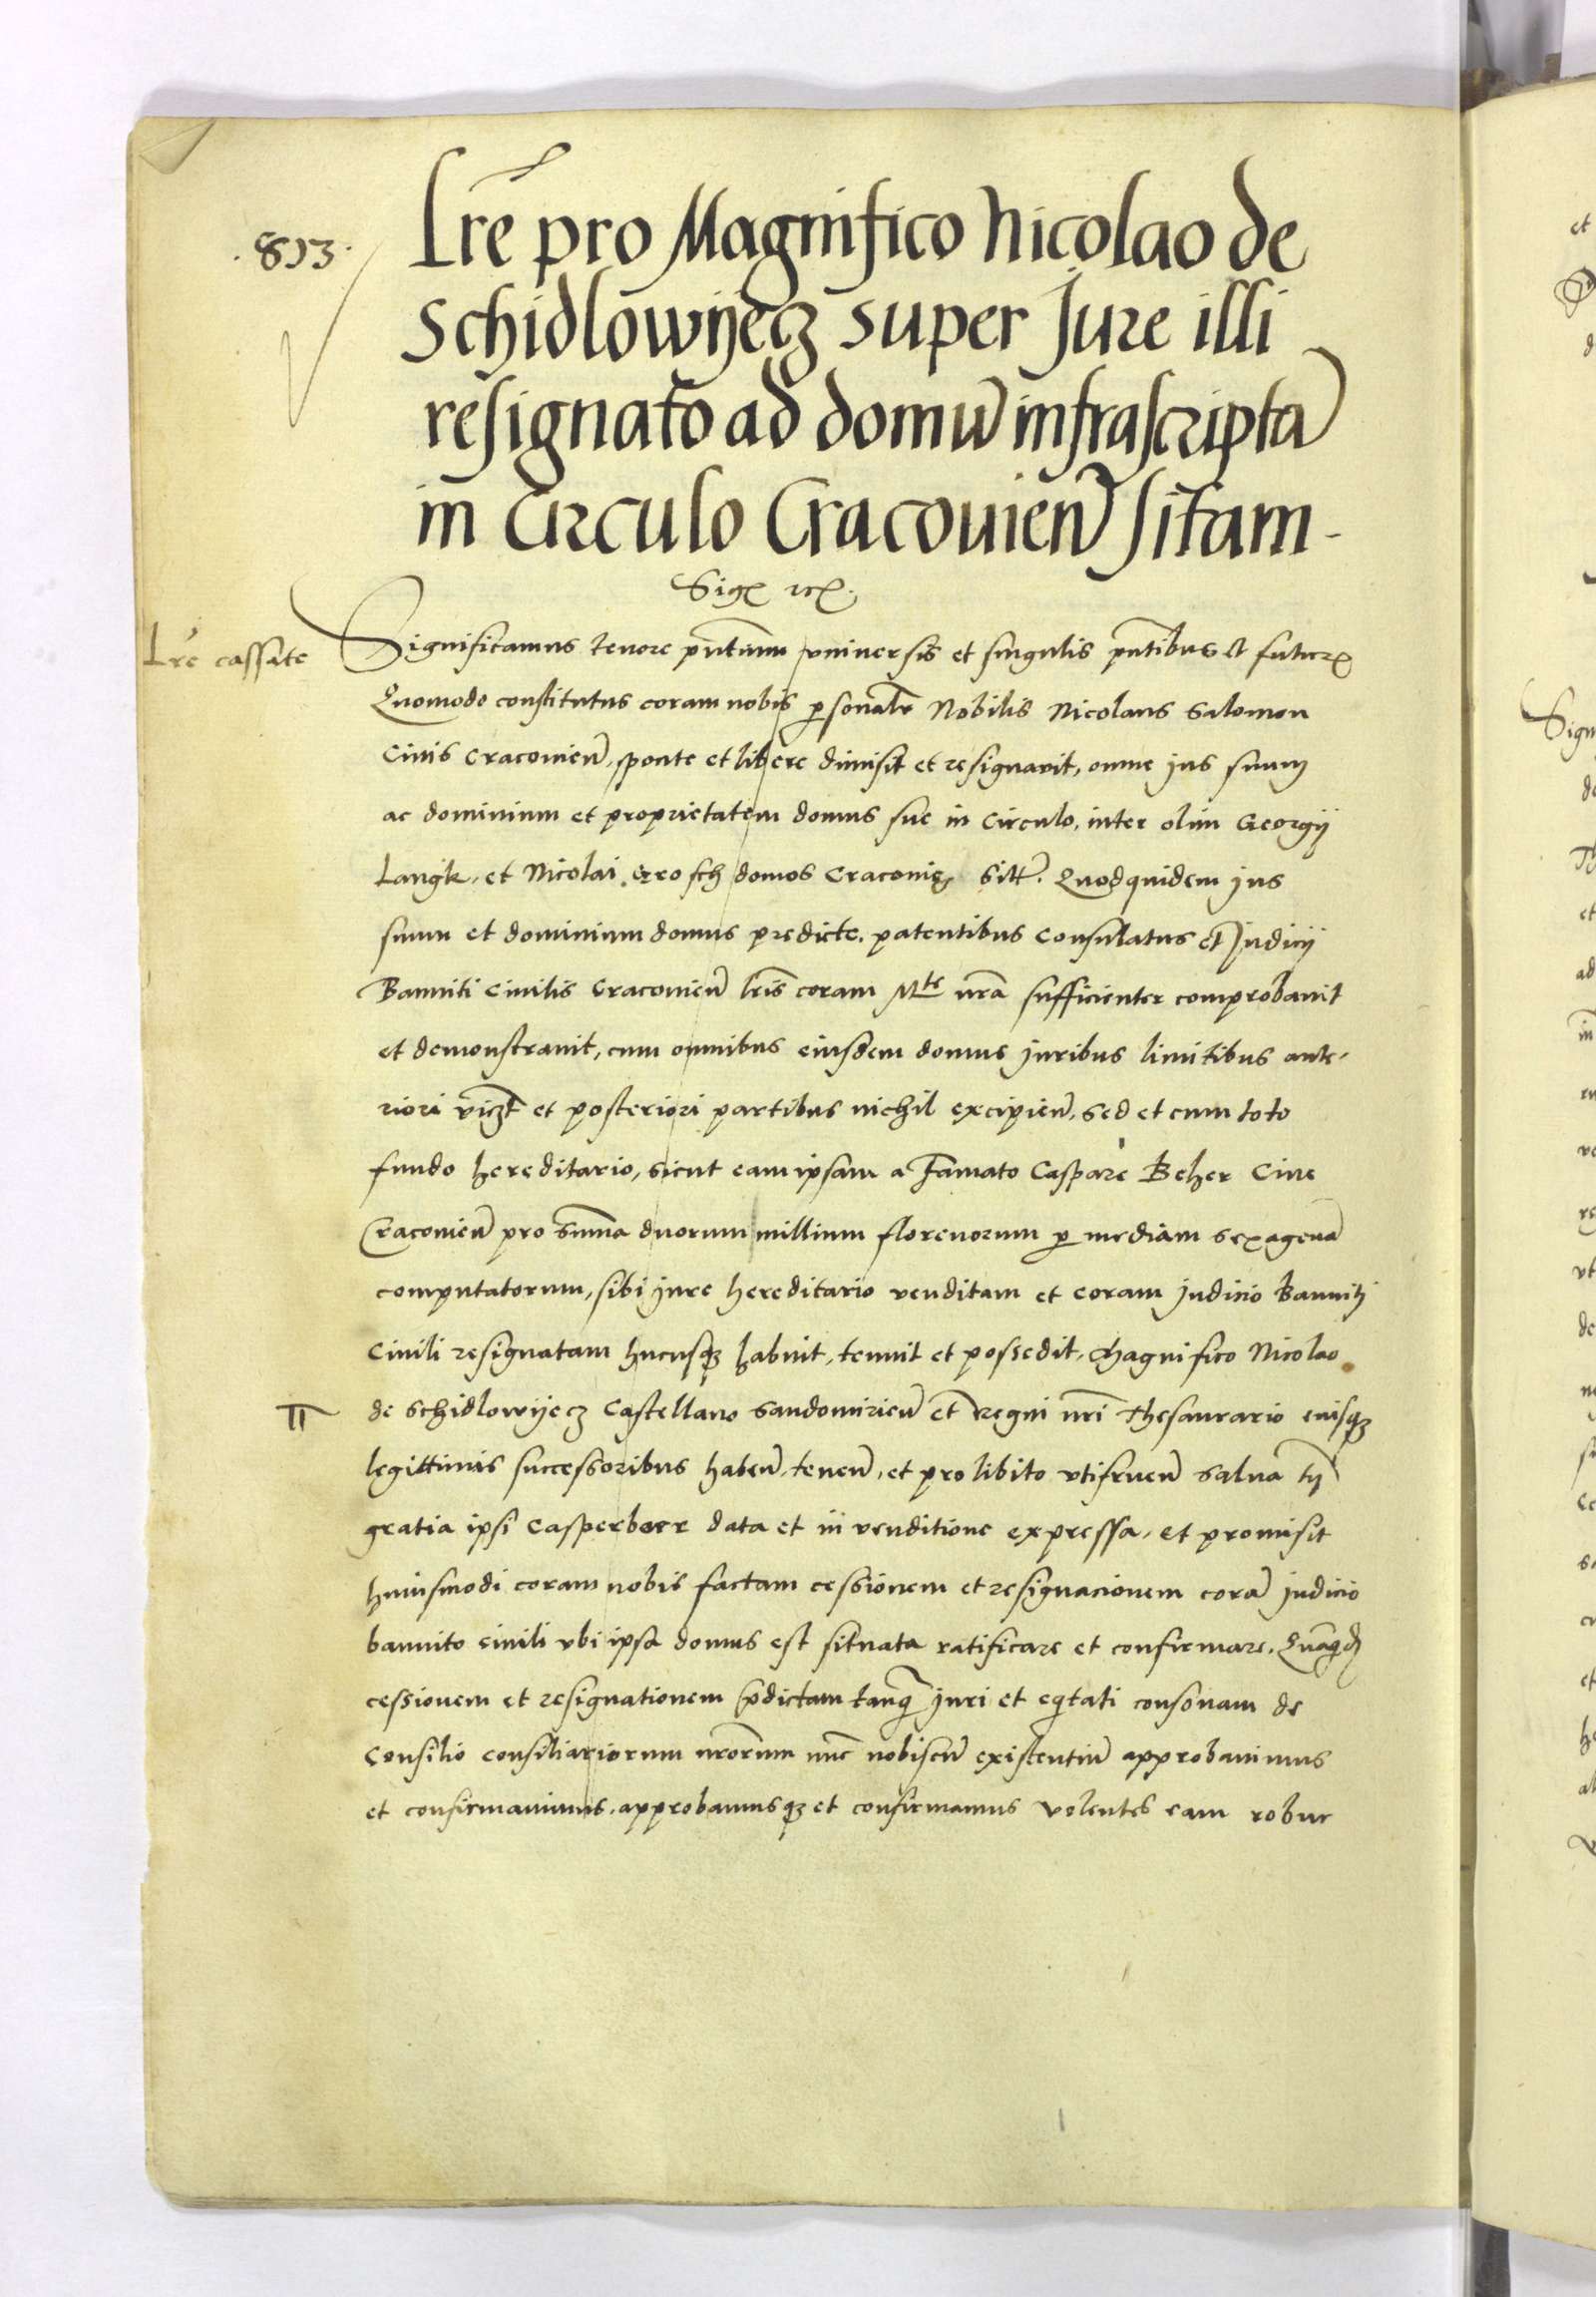 .813.
Lr̃e pro Magnifico Nicolao de
Schidlowyecz super Jure illi
resignato ad domũ infrascriptã
in Circulo Cracouień sitam.
Sigꝭ rcꝭ.
Lr̃e cassate
Significamus tenore pñtium vniversis et singulis pñtibus et futurꝭ
Quomodo constitutus coram nobis ꝑsonalr̃ Nobilis Nicolaus Salomon
Civis Cracouień, sponte et libere dimisit et resignavit, omne jus suum
ac dominium et proprietatem domus sue in Circulo, inter olim Georgij
Langk, et Nicolai domos Cracouię sitt̃. Quodquidem jus
suum et dominium domus predicte, patentibus Consulatus et Judicij
Banniti Civilis Cracouień lr̃is coram Mte nr̃a sufficienter comprobauit
et demonstrauit, cum omnibus eiusdem domus juribus limitibus ante-
riori viczt et posteriori partibus nichil excipień, sed et cum toto
fundo hereditario, sicut eam ipsam a Famato Caspare Beher Cive
Cracouień pro Sum̃a duorum millium florenorum ꝑ mediam sexagenã
computatorum, sibi jure hereditario venditam et coram judicio Banniti
Civili resignatam hucusqꝫ habuit, tenuit et possedit, Magnifico Nicolao
de Schidlowyecz Castellano Sandomirień et Regni nr̃i Thesaurario eiusqꝫ
legittimis successoribus habeń, teneń, et pro libito vtifrueń salua tñ
gratia ipsi Casperbeer data et in venditione expressa, et promisit
huiusmodi coram nobis factam cessionem et resignacionem corã judicio
bannito civili vbi ipsa domus est situata ratificare et confirmare. Quãqid
cessionem et resignationem p̃dictam tanqz juri et eqtati consonam de
Consilio consiliariorum nr̃orum nũc nobiscũ existentiũ approbauimus
et confirmauimus, approbamusqꝫ et confirmamus volentes eam robur